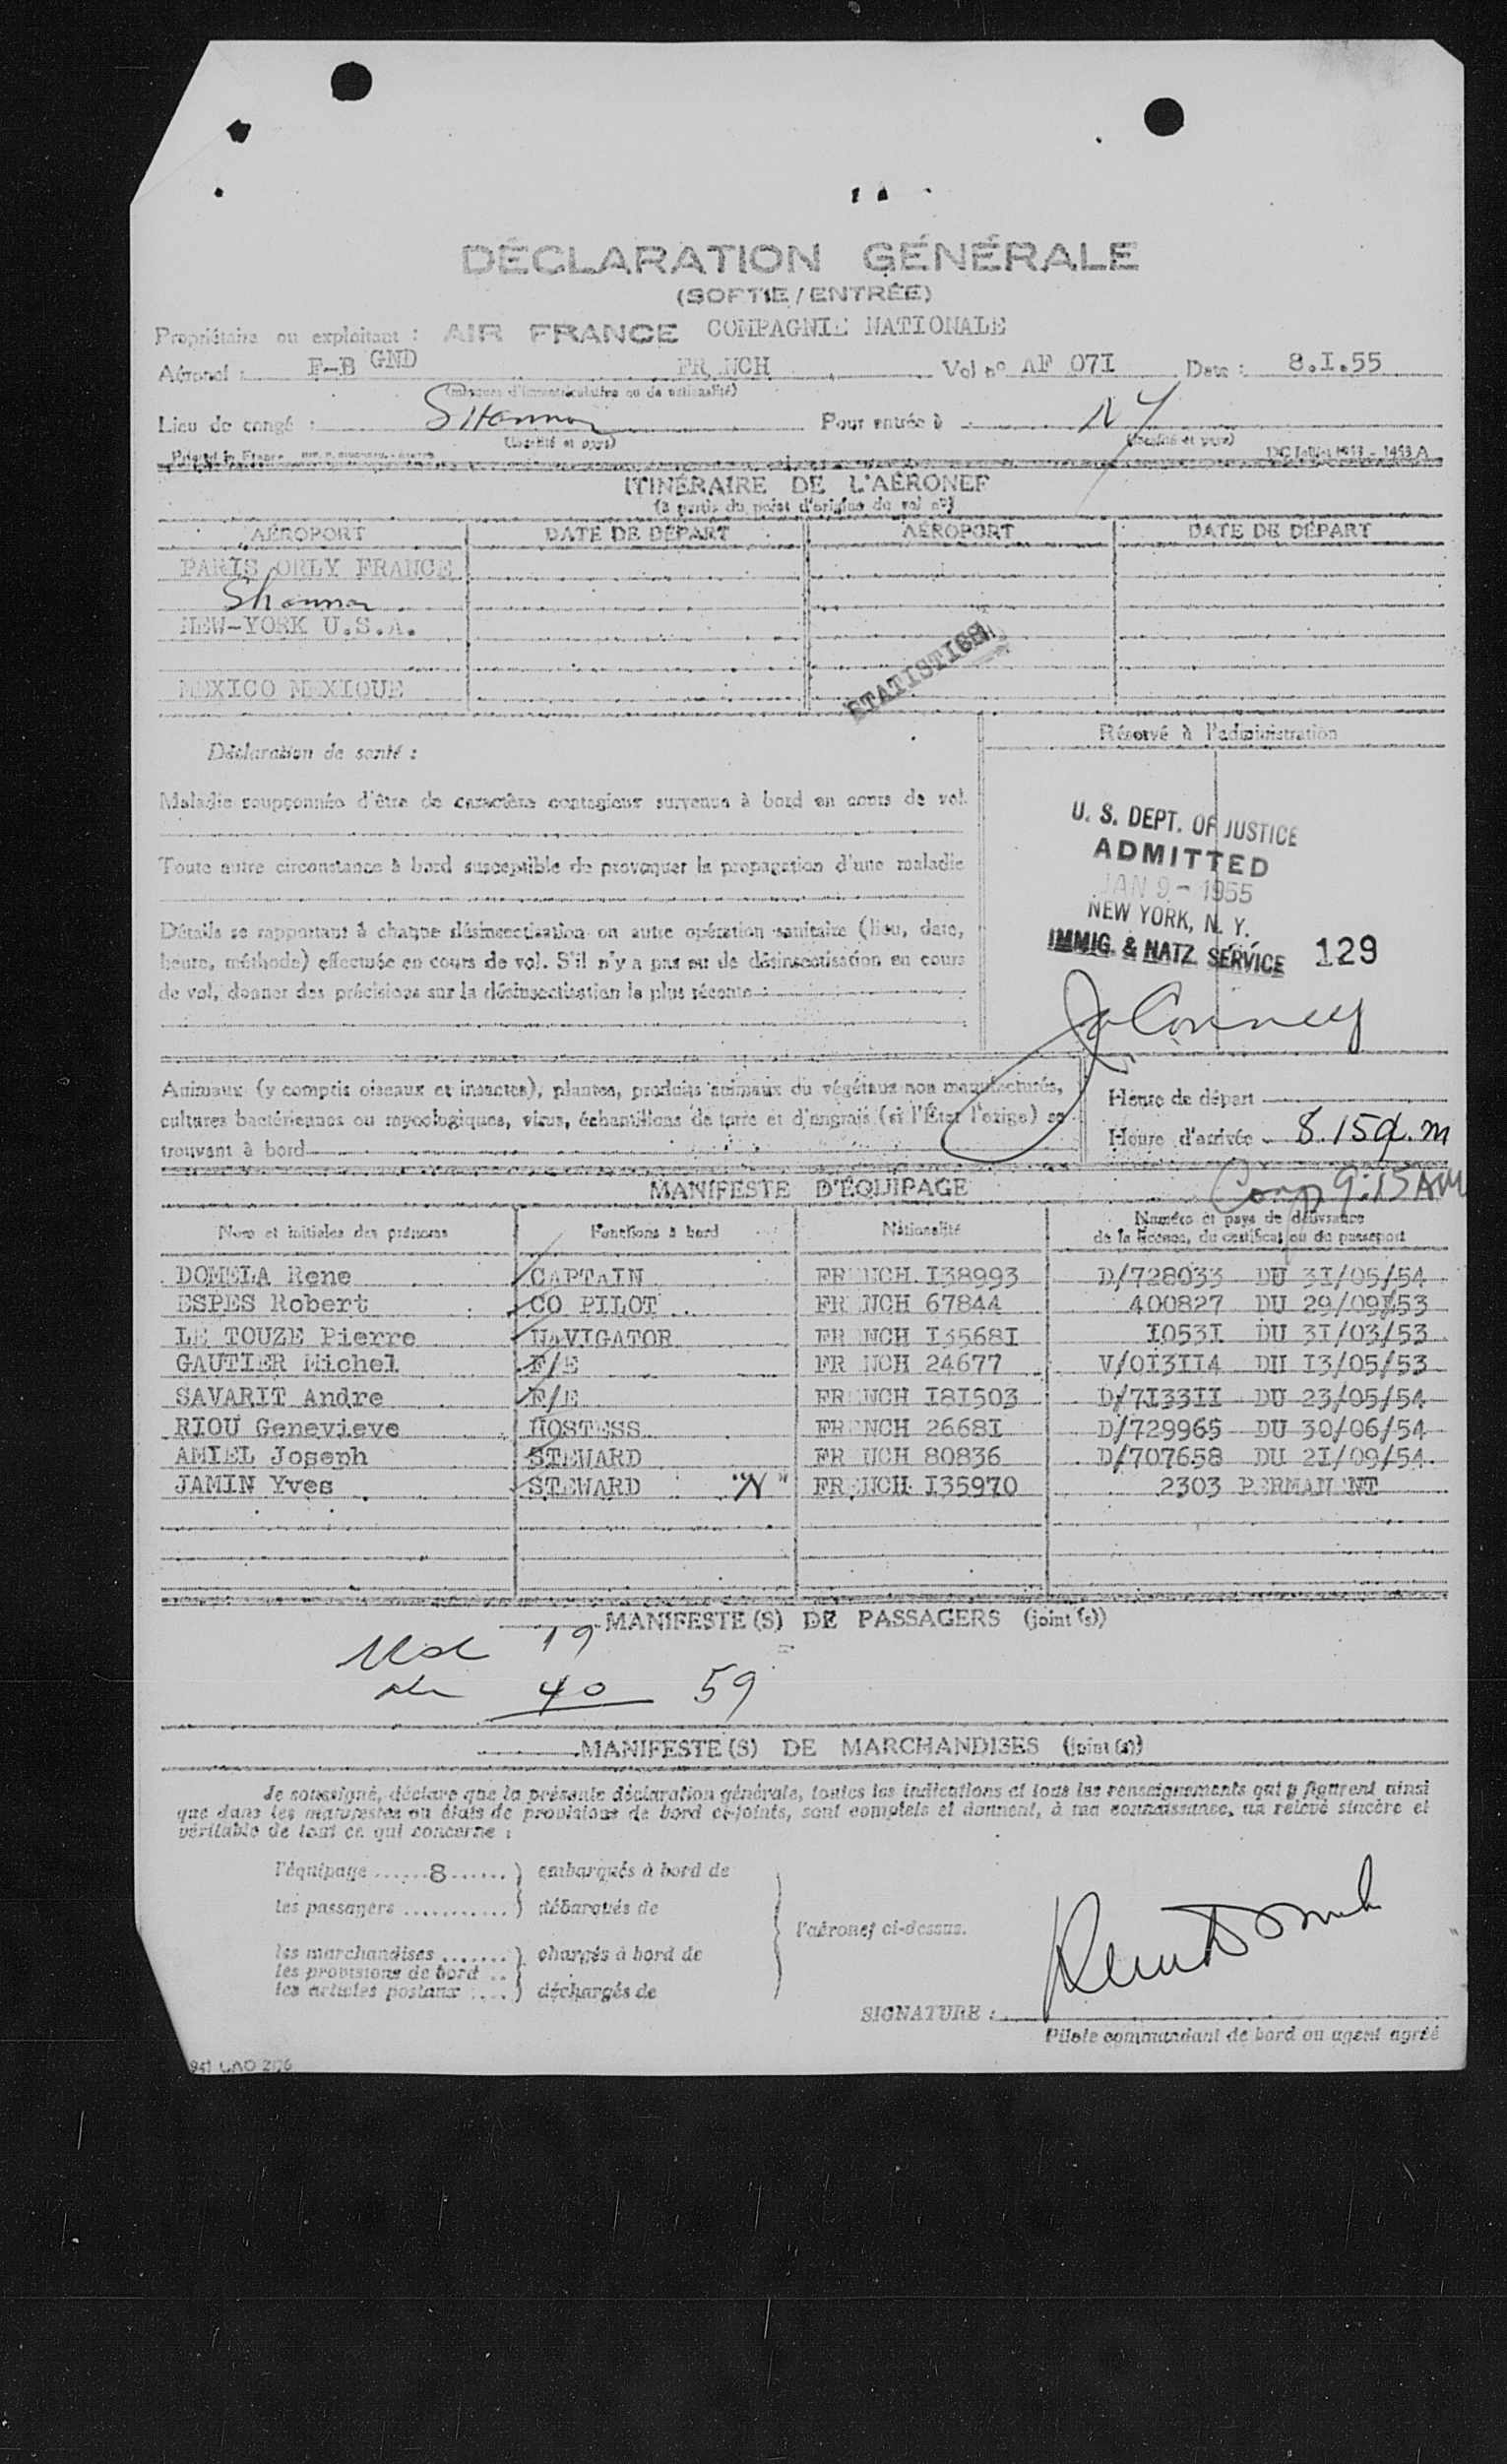 DÉCLARATION GÉNÉRALE
(SORTIE/ENTRÉE)
Propriétaire ou exploitant : AIR FRANCE COMPAGNIE NATIONALE
Aéronef : F-B GND FRENCH Vol n° AF 07I Date : 8.I.55
(marques d'immatriculation ou de nationalité)
Lieu de congé : Shannon Pour entrée à NY
(localité et pays) (localité et pays)
Printed in France
ITINÉRAIRE DE L'AÉRONEF
(à partir du point d'origine du vol n°)
AÉROPORT DATE DE DÉPART AÉROPORT DATE DE DÉPART
PARIS ORLY FRANCE
Shannon
NEW-YORK U.S.A.
MEXICO MEXIQUE
STATISTICS
Réservé à l'administration
Déclaration de santé :
Maladie soupçonnée d'être de caractère contagieux survenue à bord en cours de vol.
Toute autre circonstance à bord susceptible de provoquer la propagation d'une maladie
Détails se rapportant à chaque désinsectisation ou autre opération sanitaire (lieu, date,
heure, méthode) effectuée en cours de vol. S'il n'y a pas eu de désinsectisation en cours
de vol, donner des précisions sur la désinsectisation la plus récente :
U. S. DEPT. OF JUSTICE
ADMITTED
JAN 9 - 1955
NEW YORK, N. Y.
IMMIG. & NATZ. SERVICE 129
Animaux (y compris oiseaux et insectes), plantes, produits animaux ou végétaux non manufacturés,
cultures bactériennes ou mycologiques, virus, échantillons de terre et d'engrais (si l'État l'exige) se
trouvant à bord
Heure de départ
Heure d'arrivée 8.15 a.m
Comp 9:15 AM
MANIFESTE D'ÉQUIPAGE
Nom et initiales des prénoms Fonctions à bord Nationalité Numéro et pays de délivrance
de la licence, du certificat ou du passeport
DOMELA Rene CAPTAIN FRENCH I38993 D/728033 DU 3I/05/54
ESPES Robert CO PILOT FRENCH 67844 400827 DU 29/09/53
LE TOUZE Pierre NAVIGATOR FRENCH I3568I I053I DU 3I/03/53
GAUTIER Michel F/E FRENCH 24677 V/0I3II4 DU I3/05/53
SAVARIT Andre F/E FRENCH I8I503 D/7I33II DU 23/05/54
RIOU Genevieve HOSTESS FRENCH 2668I D/729965 DU 30/06/54
AMIEL Joseph STEWARD FRENCH 80836 D/707658 DU 2I/09/54
JAMIN Yves STEWARD "N" FRENCH I35970 2303 PERMANENT
MANIFESTE(S) DE PASSAGERS (joint (s))
19
40 59
MANIFESTE(S) DE MARCHANDISES (joint (s))
Je soussigné, déclare que la présente déclaration générale, toutes les indications et tous les renseignements qui y figurent ainsi
que dans les manifestes ou états de provisions de bord ci-joints, sont complets et donnent, à ma connaissance, un relevé sincère et
véritable de tout ce qui concerne :
l'équipage ......8...... ) embarqués à bord de
les passagers ........... ) débarqués de
l'aéronef ci-dessus.
les marchandises ....... ) chargés à bord de
les provisions de bord ..
les articles postaux .... ) déchargés de
SIGNATURE :
Pilote commandant de bord ou agent agréé